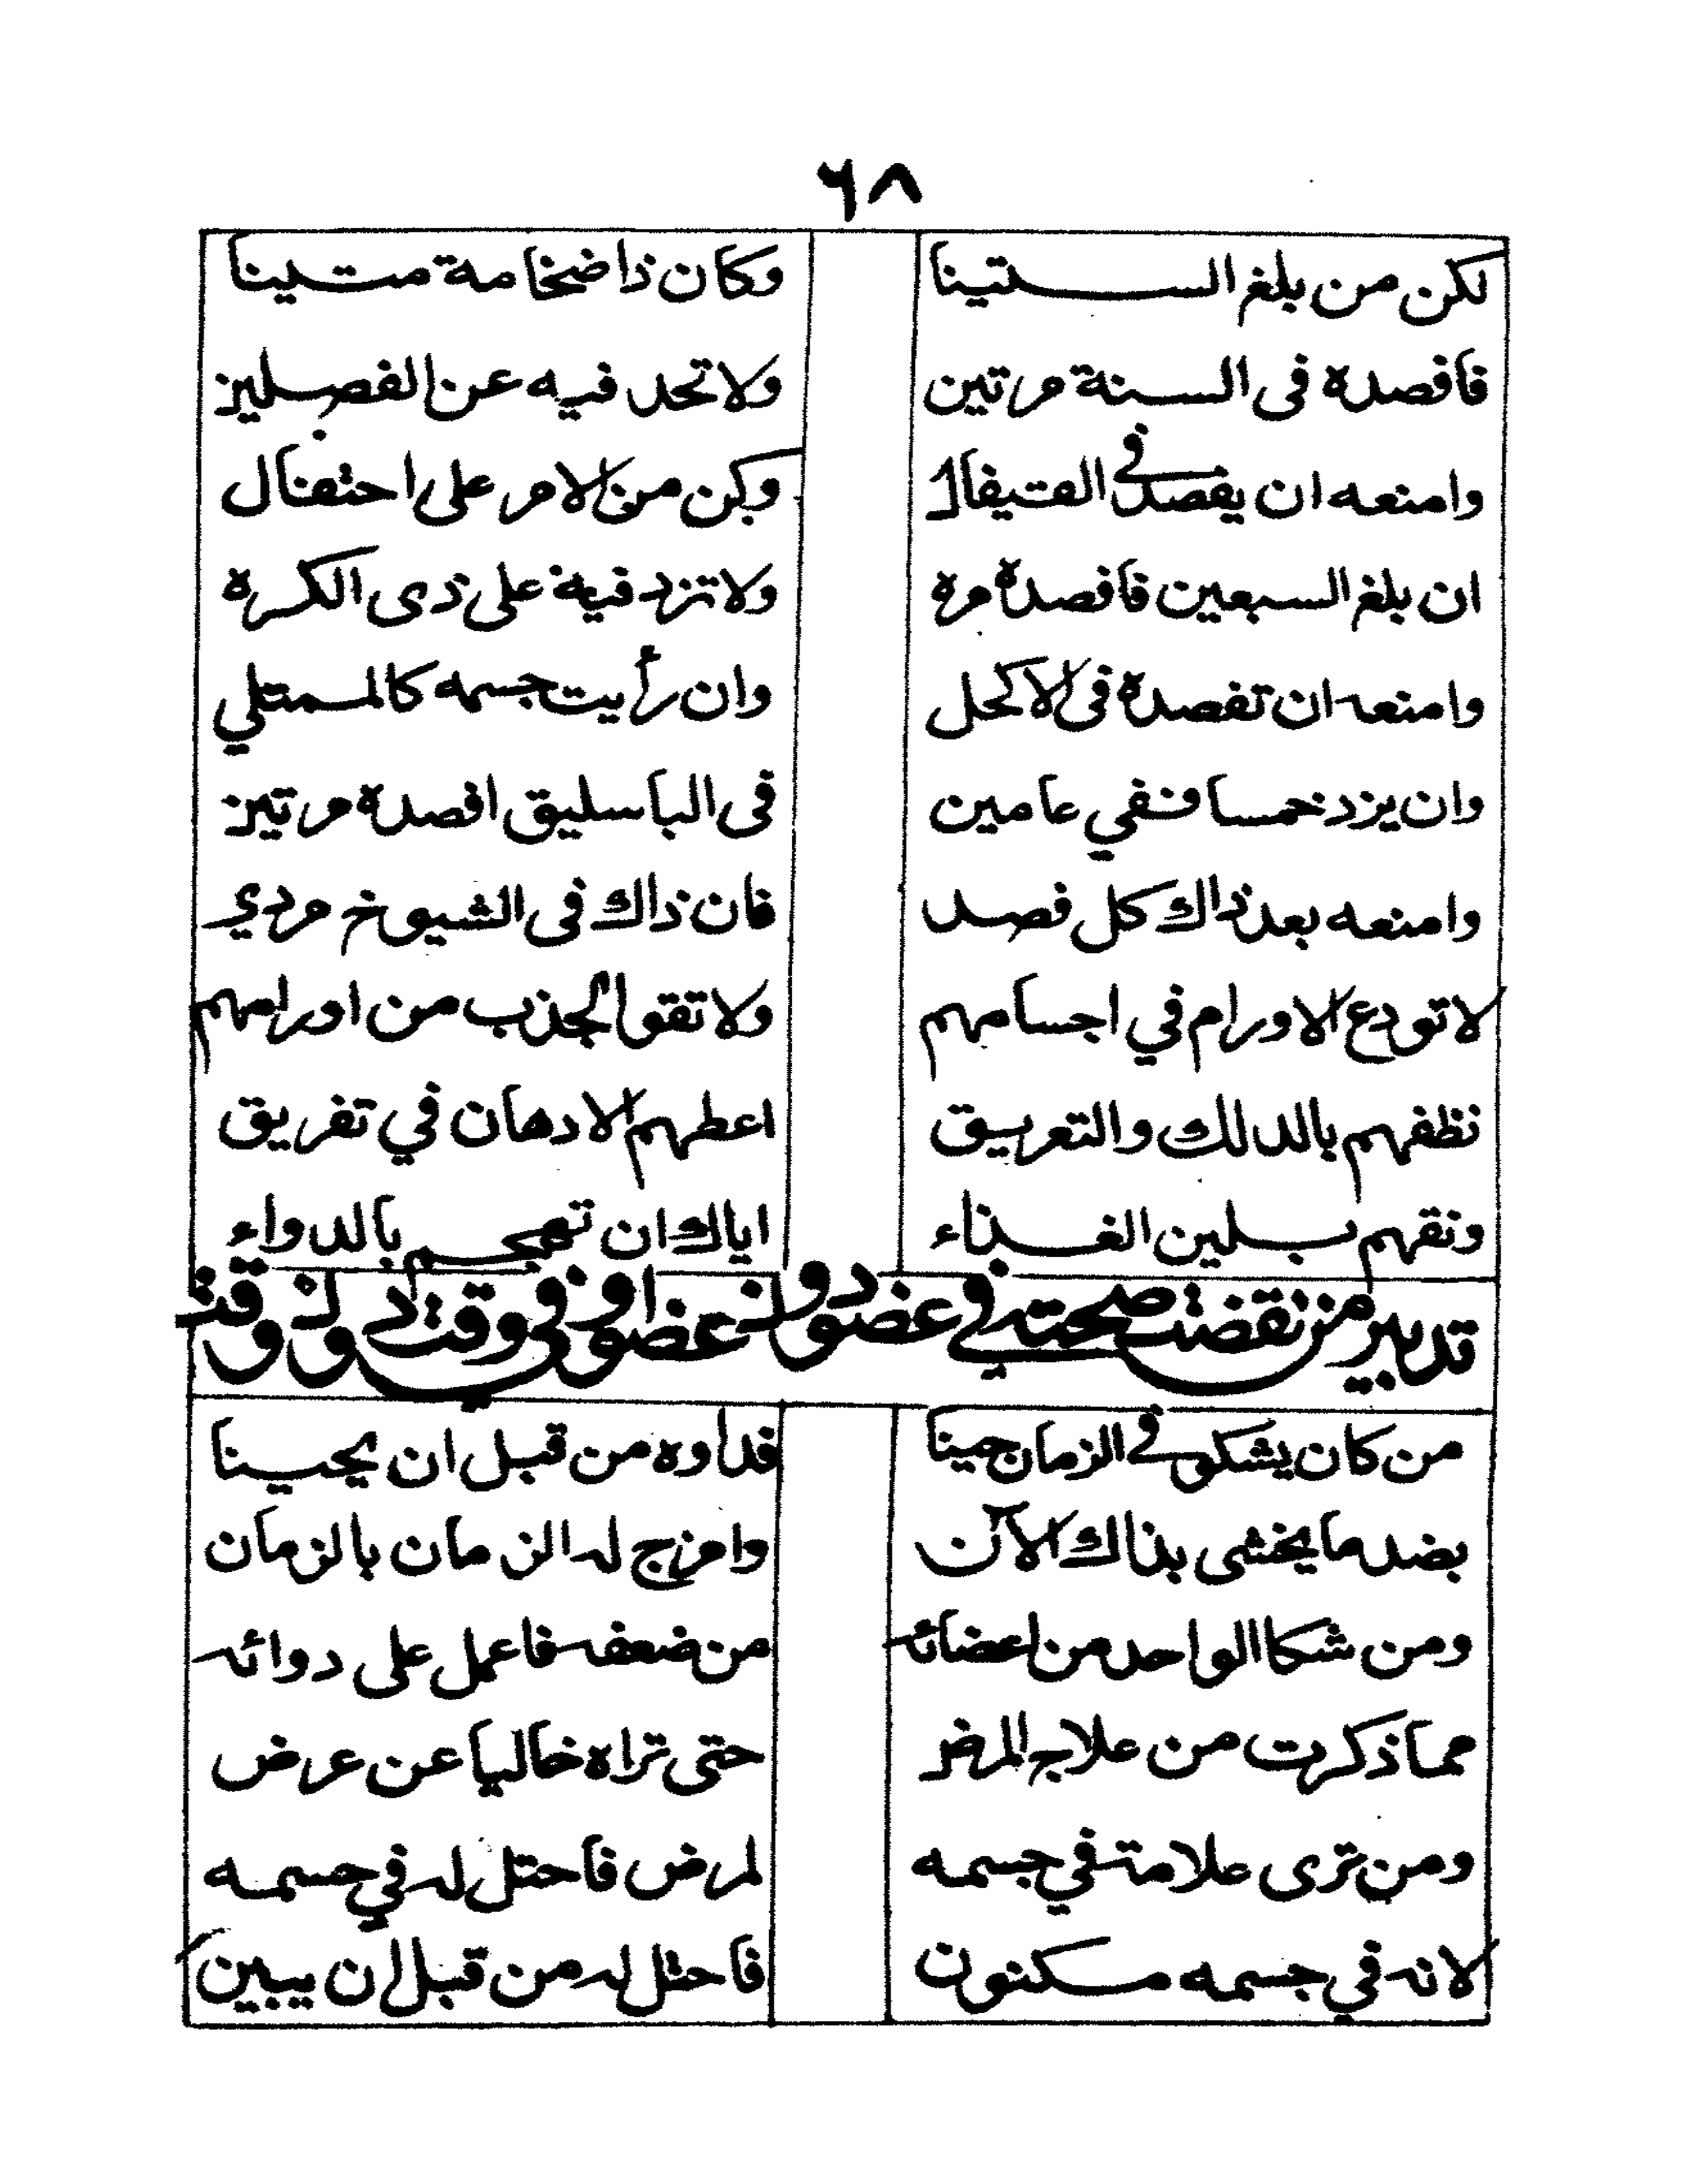 ٦٨
لكن من بلغ الستينا وكان ذا ضخامة متينا
فافصده فى السنة مرتين ولا تحد فيه عن الفصلين
وامنعه ان يفصد في القيفال وكن من الامر على احتفال
ان بلغ السبعين فافصده مره ولا تزد فيه على ذى الكره
وامنعه ان تفصده فى الاكحل وان رأيت جسمه كالممتلي
وان يزد خمسا ففي عامين فى الباسليق افصده مرتين
وامنعه بعد ذاك كل فصد فان ذاك فى الشيوخ مردي
لا تودع الاورام في اجسامهم ولا تقو الجذب من اورامهم
نظفهم بالدلك والتعريق اعطهم الادهان في تفريق
ونقهم بلين الغذاء اياك ان تهجم بالدواء
تدبير من نقضت صحته في عضو دون عضو او في وقت دون وقت
من كان يشكو في الزمان حينا فداوه من قبل ان يحينا
بضد ما يخشى بذاك الآن وامزج له الزمان بالزمان
ومن شكا الواحد من اعضائه من ضعفه فاعمل على دوائه
مما ذكرت من علاج المرض حتى تراه خاليا عن عرض
ومن ترى علامة في جسمه لمرض فاحتل له في حسمه
لانه في جسمه مسكنون فاحتل له من قبل ان يبين